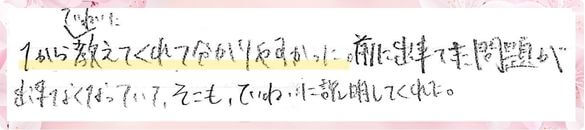 ていねいに
1から教えてくれて分かりやすかった。前に出来てた問題が
出来なくなっていて、そこも、ていねいに説明してくれた。